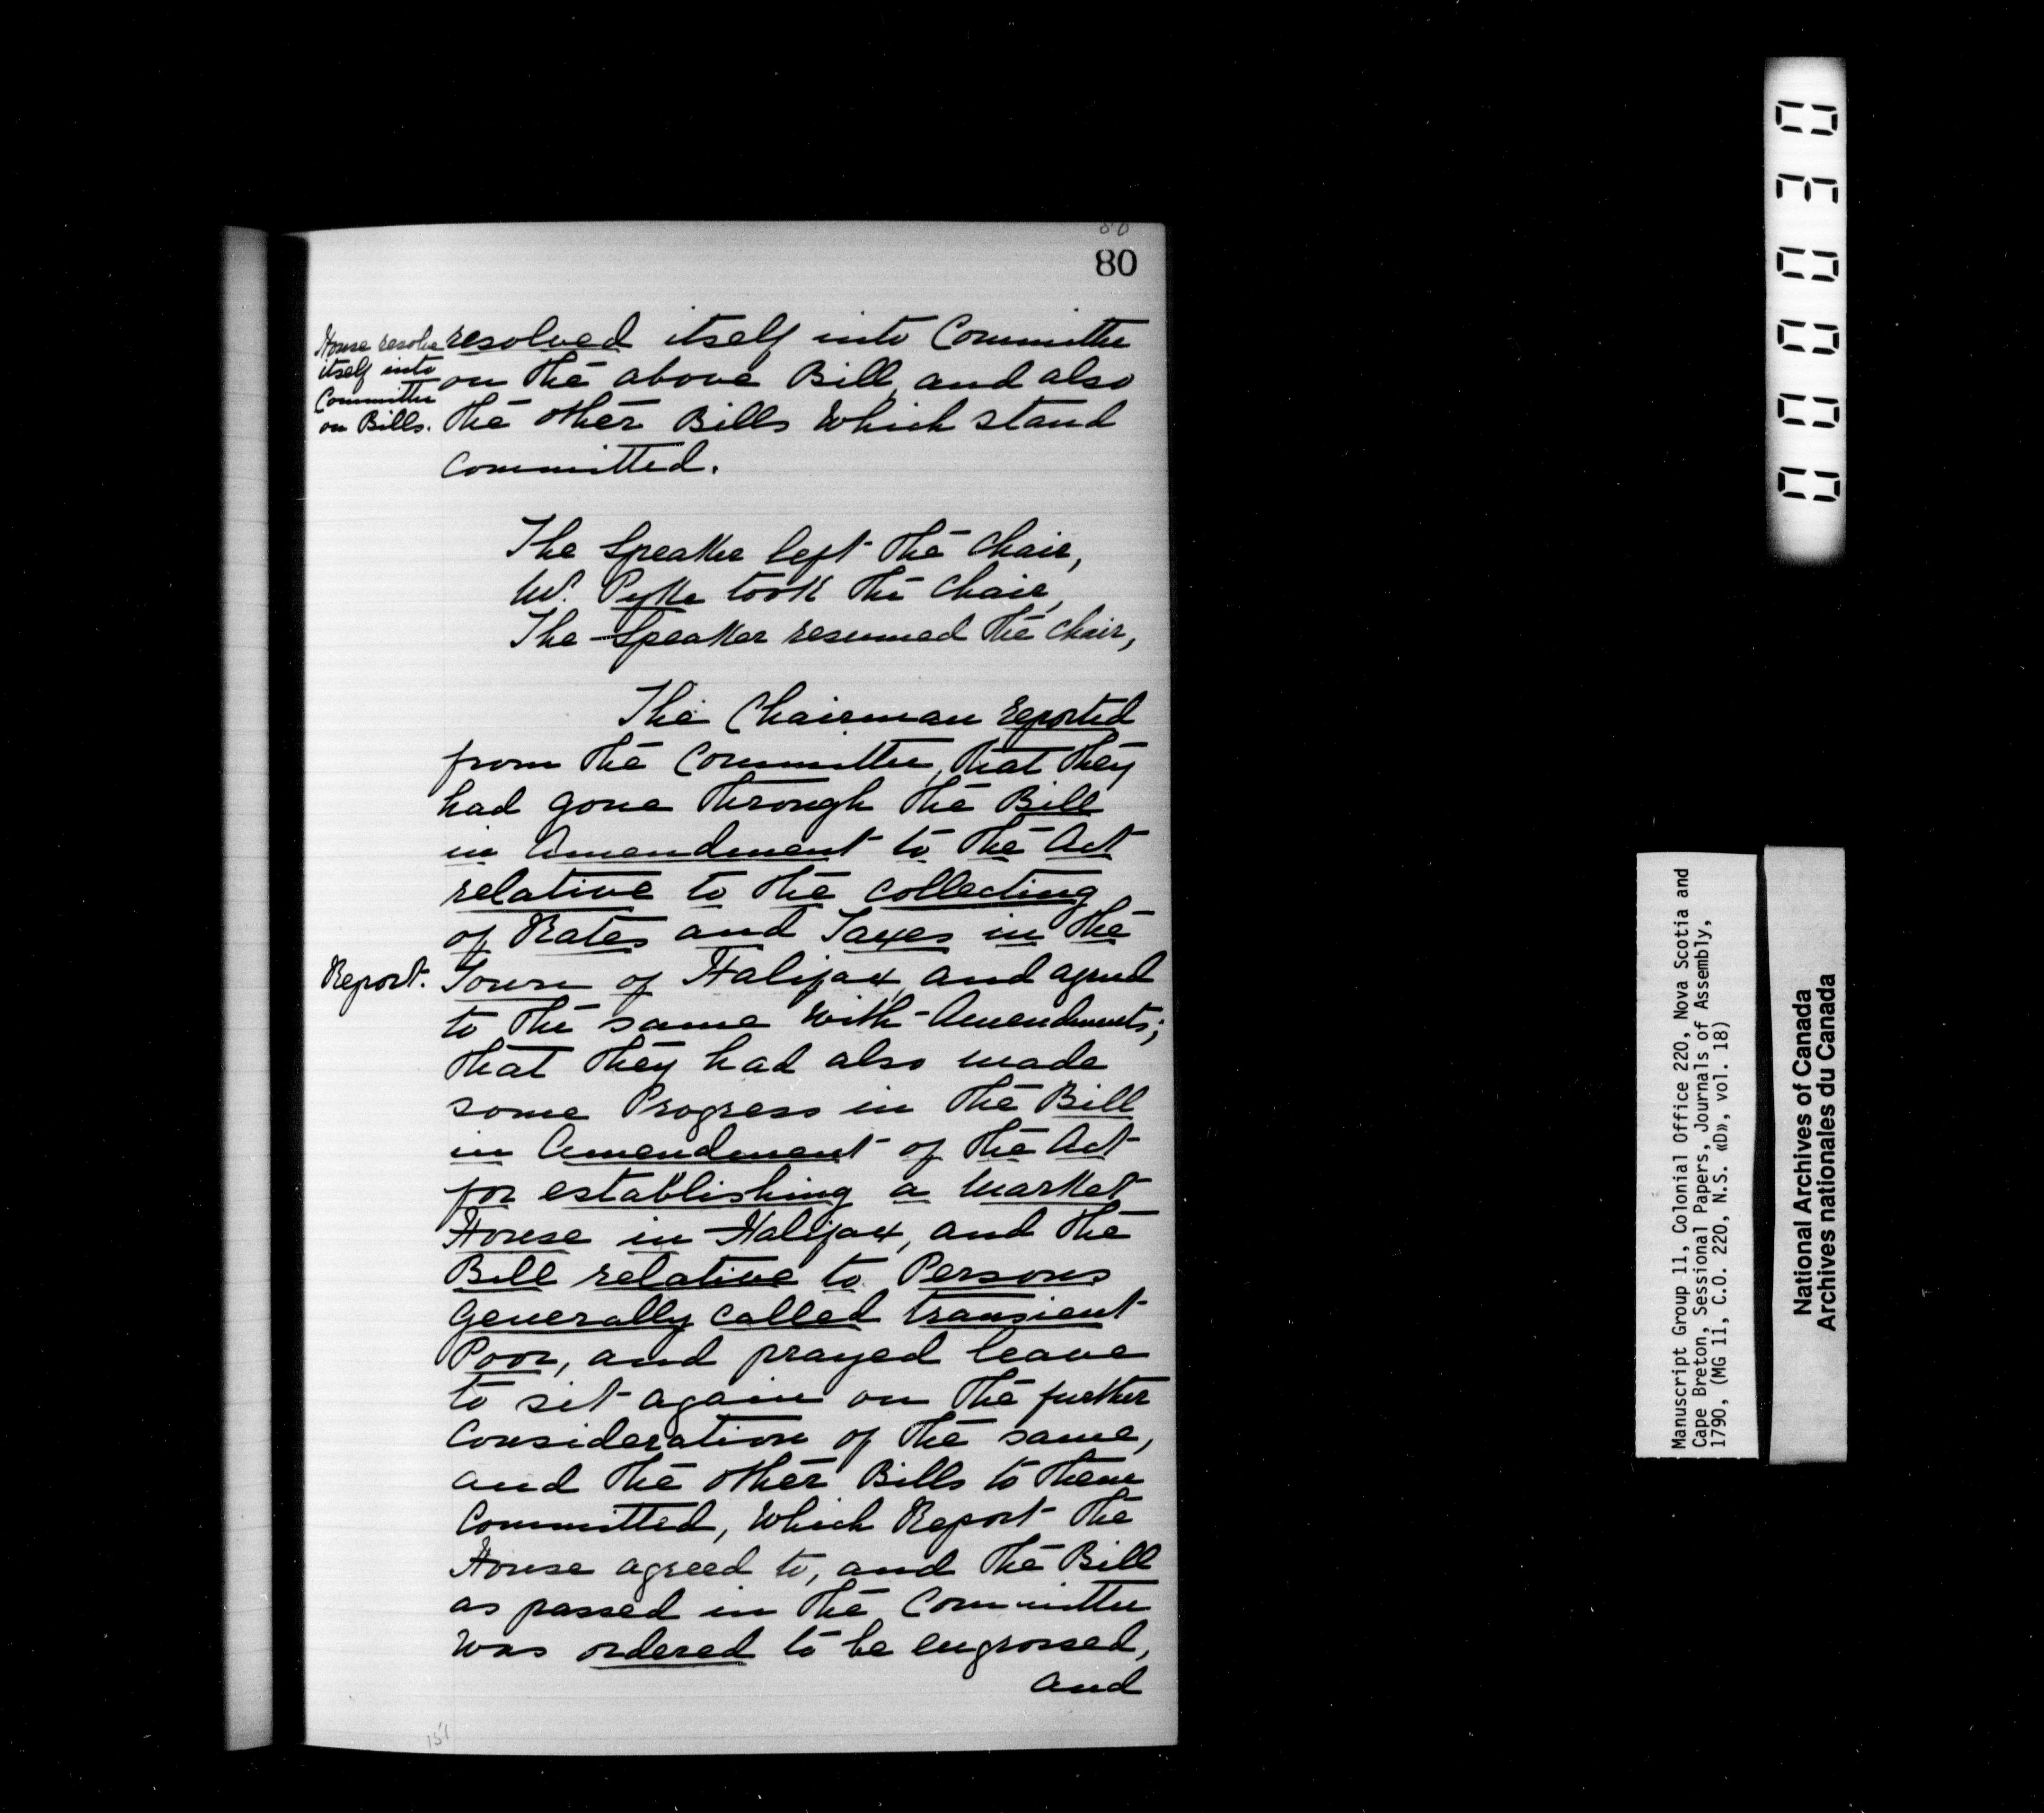 80
80
House resolve
itself into
Committee
on Bills.
resolved itself into Committee
on the above Bill, and also
the other Bills which stand
committed.
The Speaker left the Chair,
Mr. Pyke took the Chair,
The Speaker resumed the Chair,
The Chairman reported
from the Committee, that they
had gone through the Bill
in Amendment to the Act
relative to the collecting
of Rates and Taxes in the
Report.
Town of Halifax, and agreed
to the same with Amendments;
that they had also made
some Progress in the Bill
in Amendment of the Act
for establishing a Market
House in Halifax, and the
Bill relative to Persons
generally called transient
Poor, and prayed leave
to sit again on the further
Consideration of the same,
and the other Bills to them
Committed, which Report the
House agreed to, and the Bill
as passed in the Committee
was ordered to be engrossed,
and
151
000030
Manuscript Group 11, Colonial Office 220, Nova Scotia and
Cape Breton, Sessional Papers, Journals of Assembly,
1790, (MG 11, C.O. 220, N.S. «D», vol. 18)
National Archives of Canada
Archives nationales du Canada